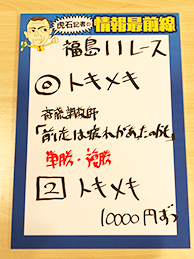 虎石記者の
情報最前線
福島11レース
◎トキメキ
斉藤調教師
「前走は疲れがあったのかも」
単勝・複勝
2 トキメキ
10000円ずつ